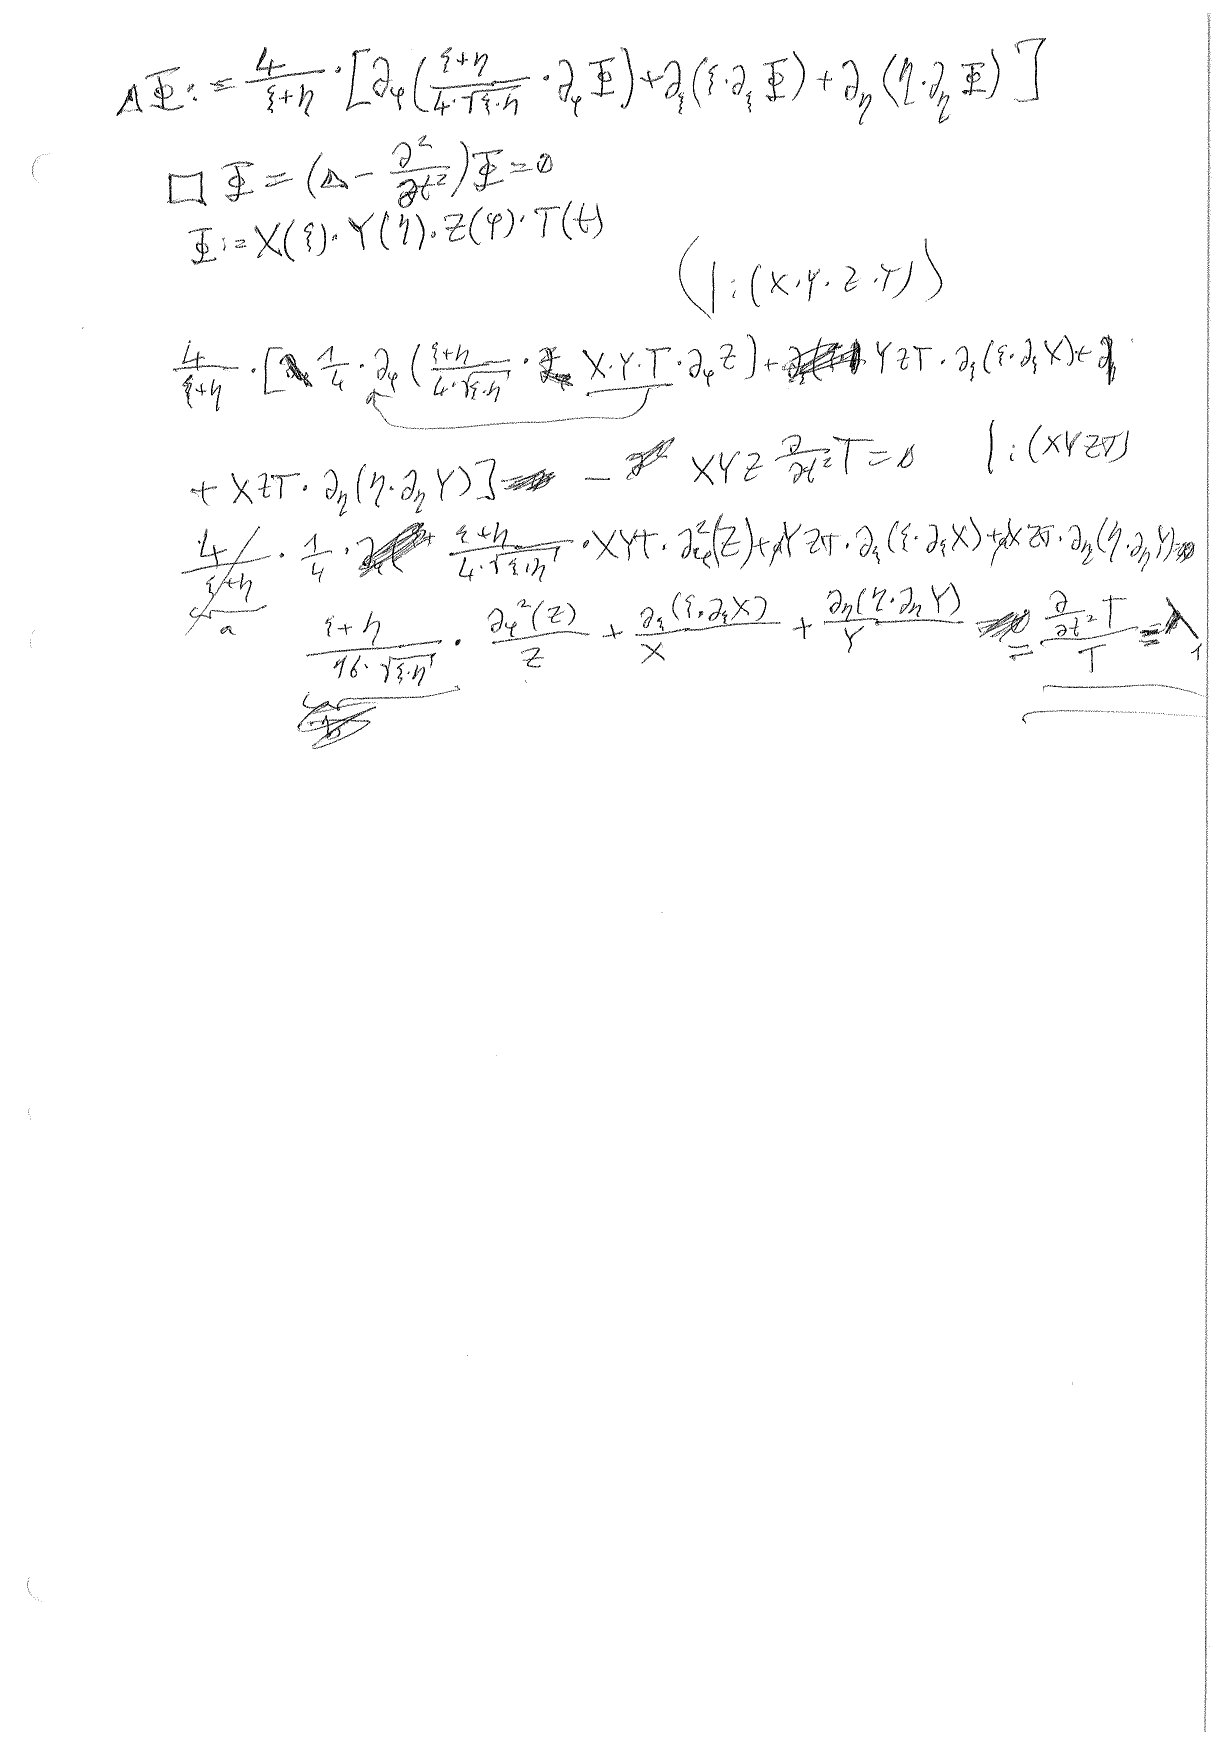 ΔΦ := 4/(ξ+η) · [∂φ((ξ+η)/(4·√(ξ·η)) · ∂φ Φ) + ∂ξ(ξ·∂ξ Φ) + ∂η(η·∂η Φ)]
□ Φ = (Δ − ∂²/∂t²)Φ = 0
Φ := X(ξ)·Y(η)·Z(φ)·T(t)
(|:(X·Y·Z·T))
4/(ξ+η) · [1/4 · ∂φ((ξ+η)/(4·√(ξ·η)) · X·Y·T · ∂φ Z) + YZT · ∂ξ(ξ·∂ξ X) + ∂η
+ XZT · ∂η(η·∂η Y)] − XYZ ∂/∂t² T = 0 |:(XYZT)
4/(ξ+η) · 1/4 · (ξ+η)/(4·√(ξ·η)) · XYT · ∂φ²(Z) + YZT · ∂ξ(ξ·∂ξ X) + XZT · ∂η(η·∂η Y) =
a
(ξ+η)/(16·√(ξ·η)) · ∂φ²(Z)/Z + ∂ξ(ξ·∂ξ X)/X + ∂η(η·∂η Y)/Y = ∂/∂t² T/T = λ₁